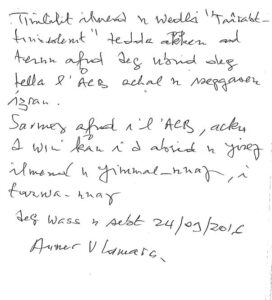 Timlilit ilmend n wedlis "Taârabt-
tineslemt" tedda akken ad
ternu afud deg ubrid deg
tella l'ACB achal n seggasen
izran.
Sarmeγ afud i l'ACB, acku
d win kan i d abrid n yiseγ
ilmend n yimmal-nnaγ, i
tarwa-nnaγ
deg wass n sebt 24/09/2016
Aumer U Lamara.